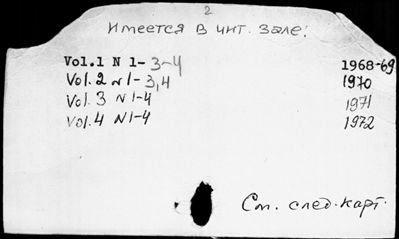 2
Имеется в чит. зале:
Vol.1 N 1-3-4 1968-69
Vol. 2 N 1-3,4 1970
Vol. 3 N 1-4 1971
Vol. 4 N 1-4 1972
См. след. карт.